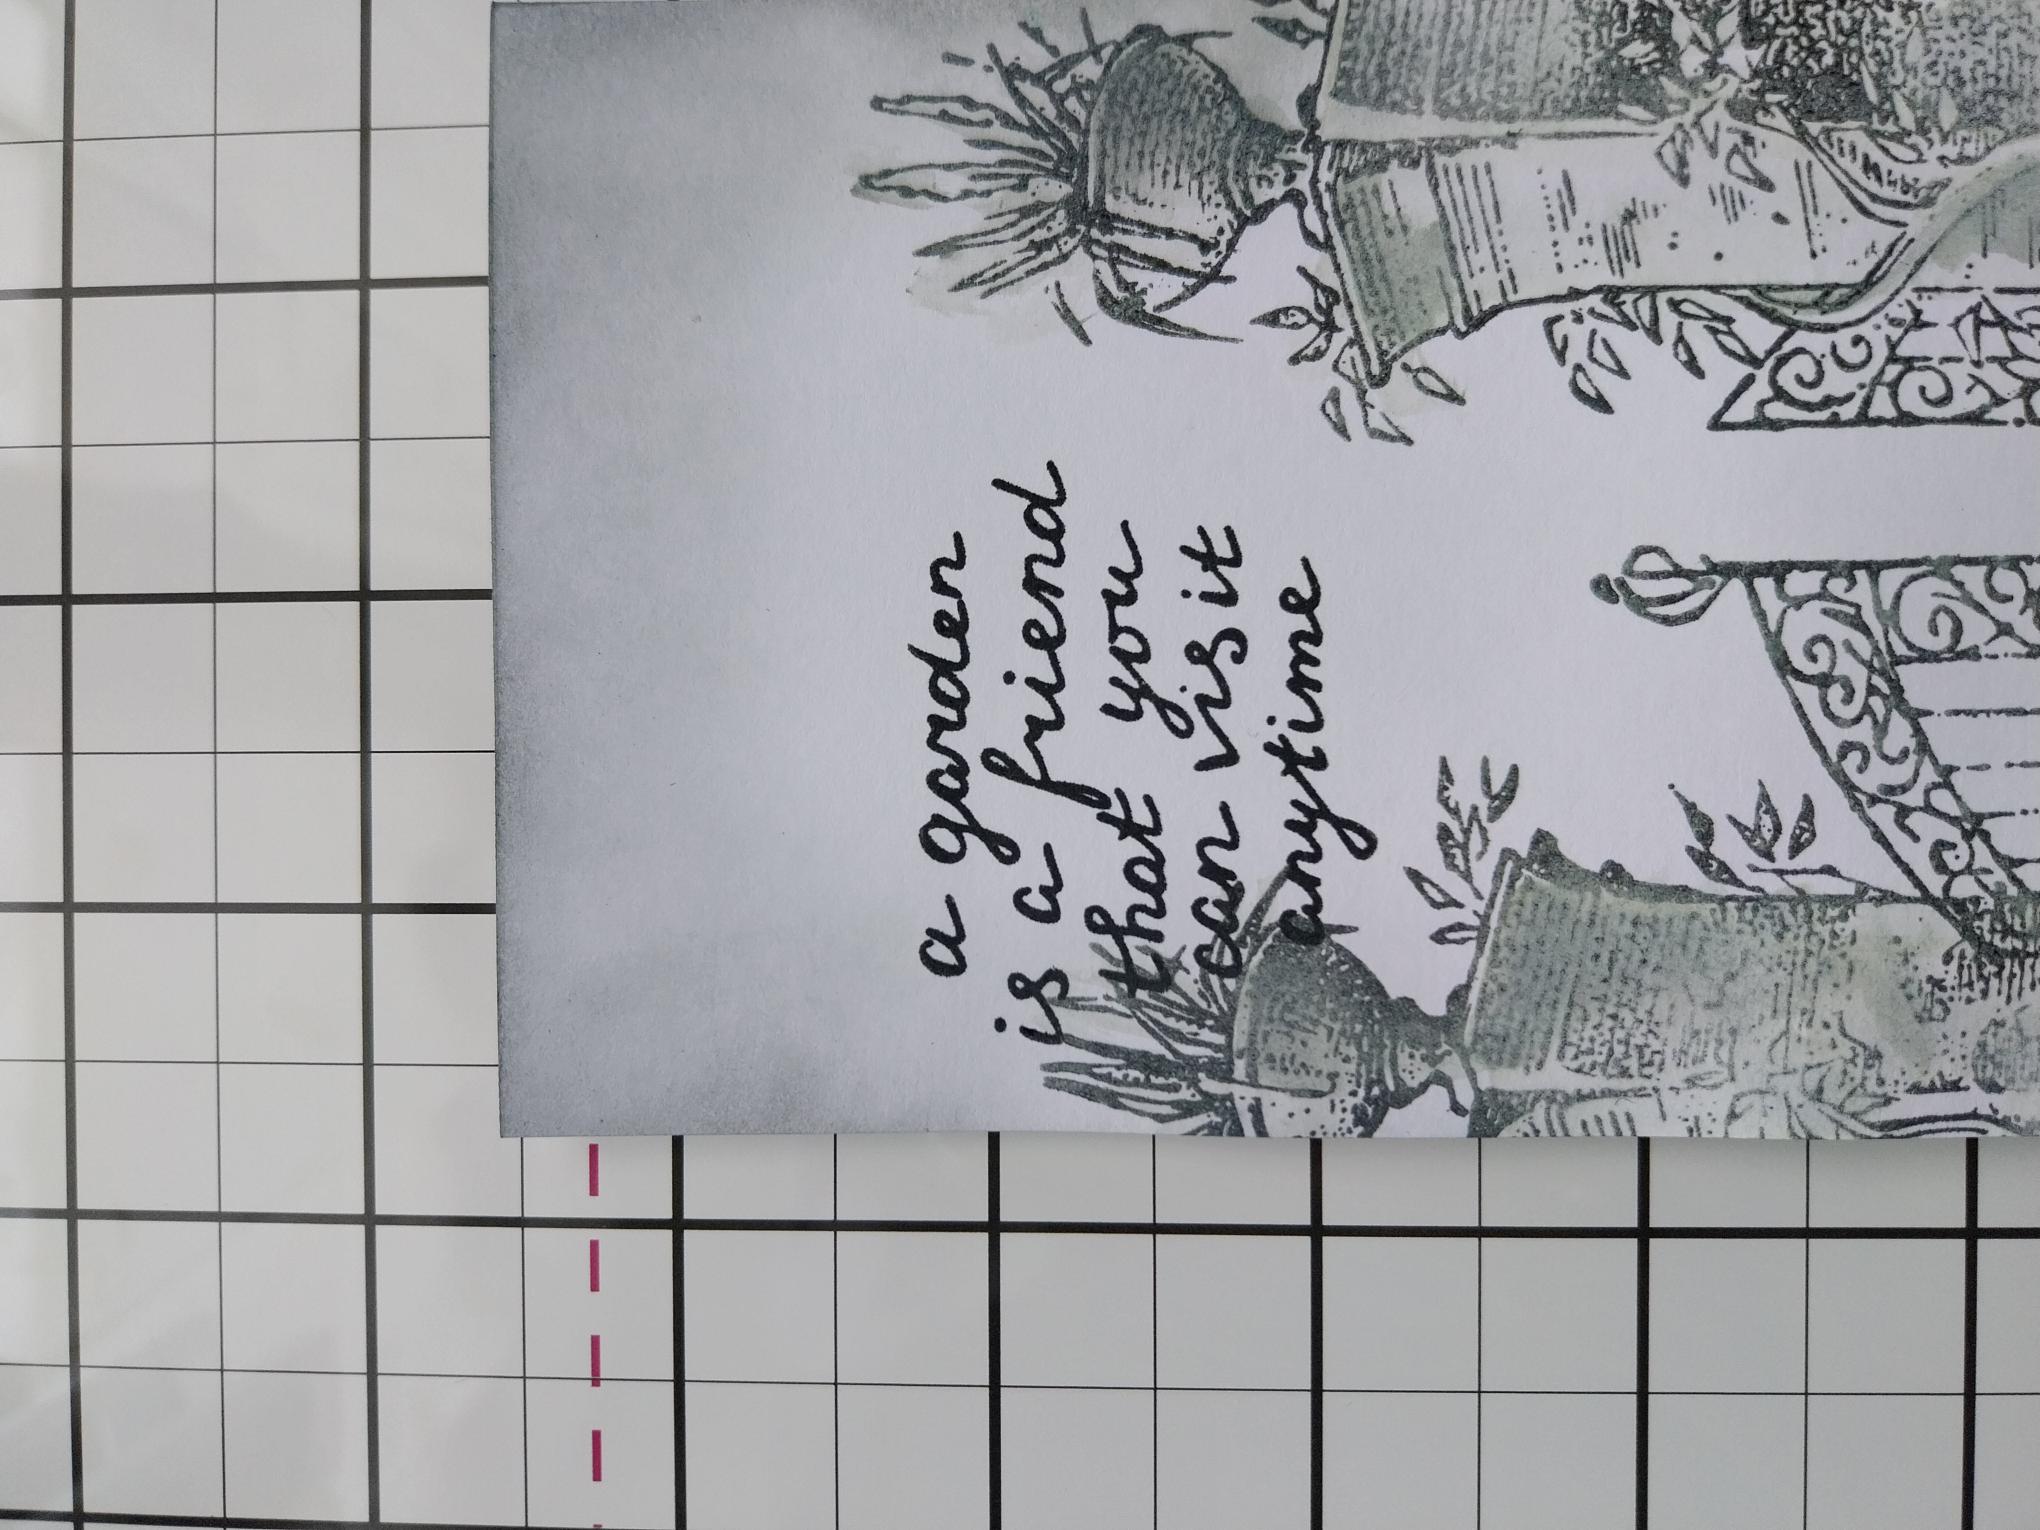 a garden
is a friend
that you
can visit
anytime